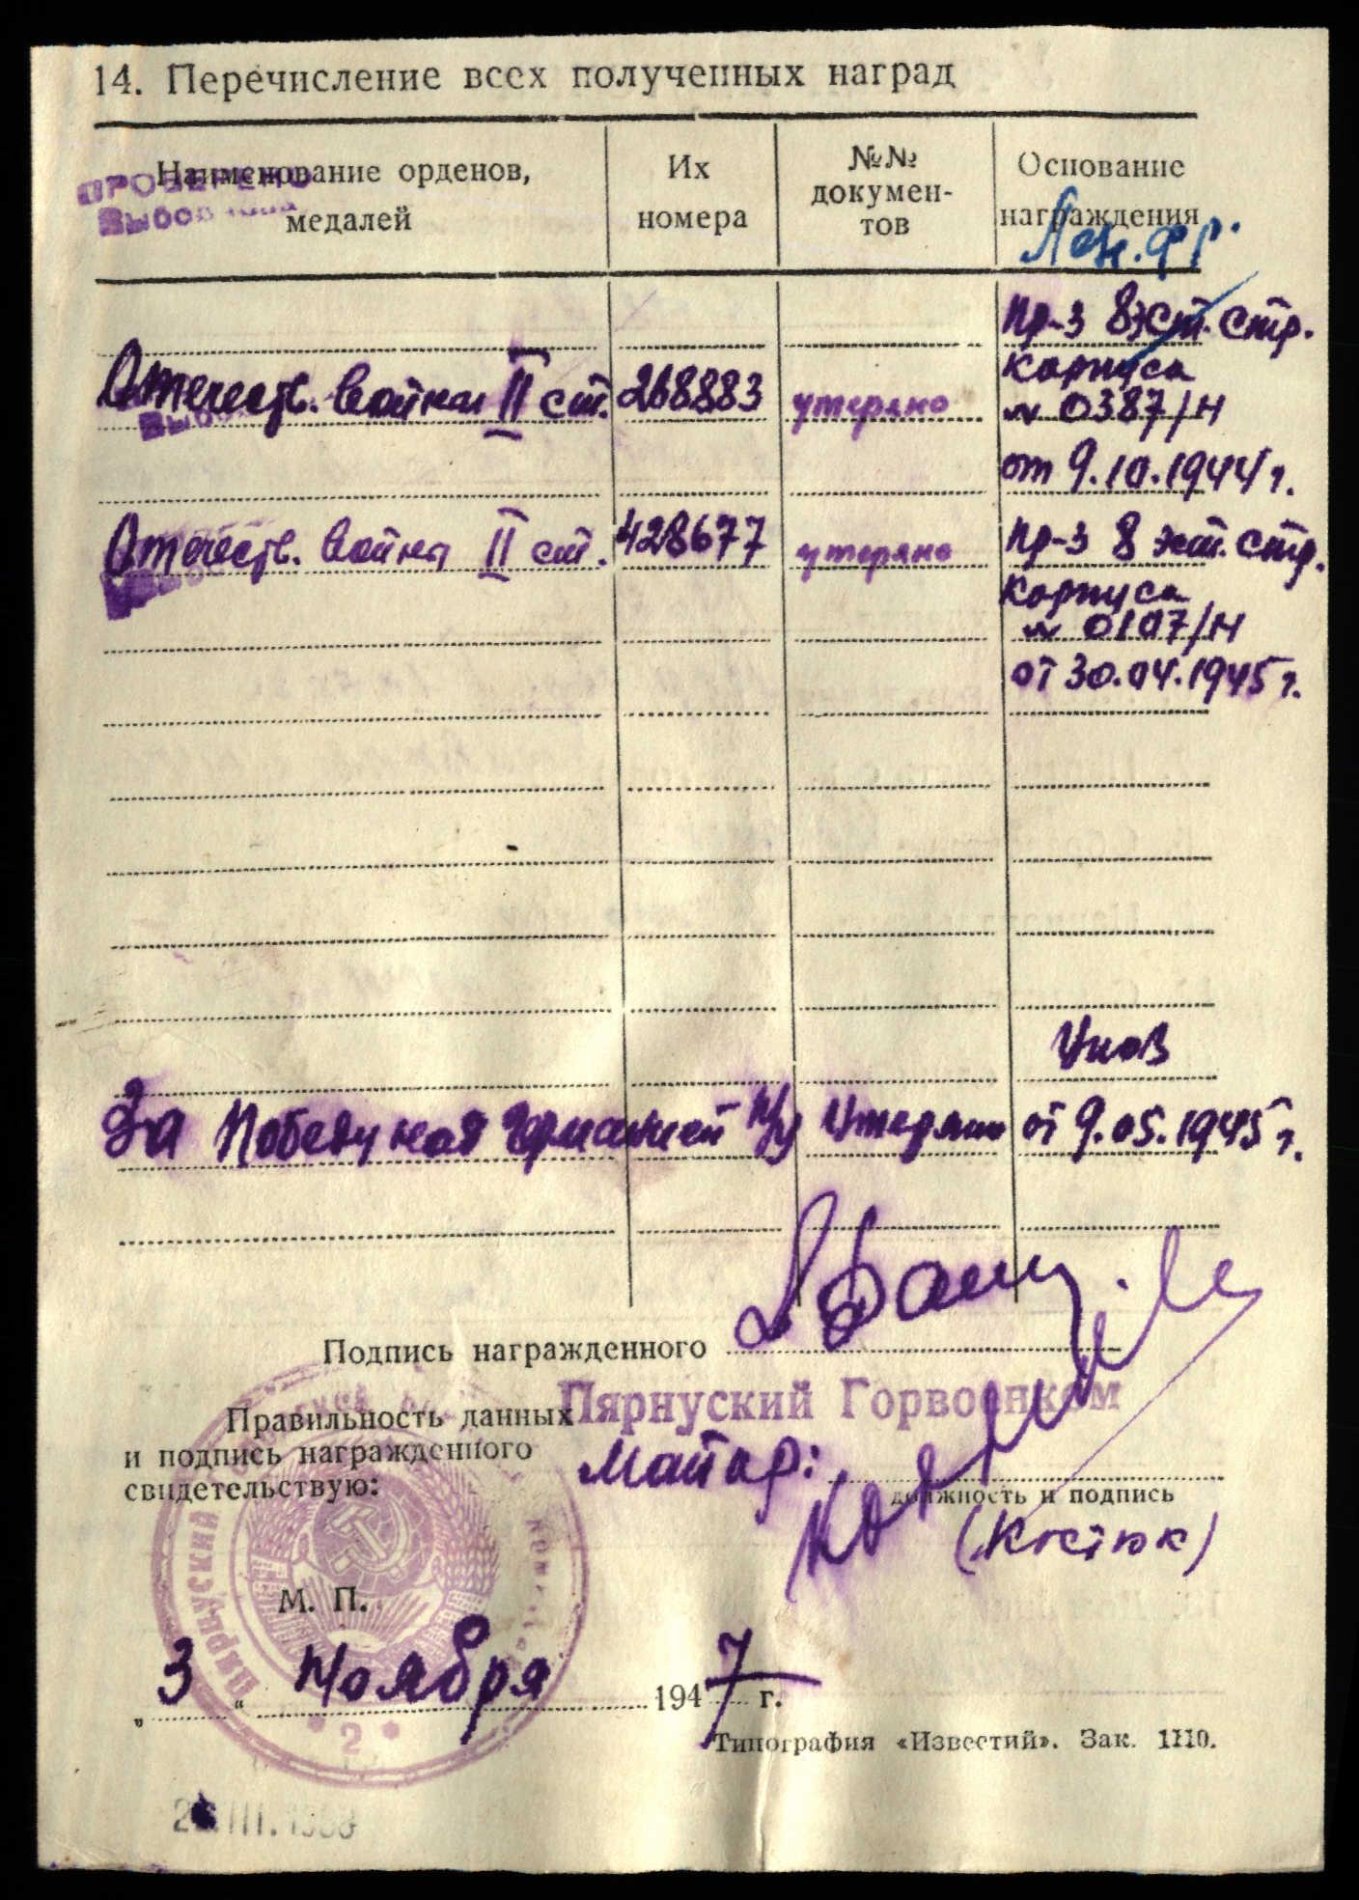 14. Перечисление всех полученных наград
Наименование орденов, медалей
Их номера
№№ докумен-тов
Основание награждения
ПРОВЕРЕНО
Лен. фр.
Пр-з 8 эст. стр.
Отечеств. войны II ст. 268883 утеряно
корпуса
№ 0387/н
от 9.10.1944 г.
Отечеств. война II ст. 428677 утеряно
Пр-з 8 эст. стр.
корпуса
№ 0107/н
от 30.04.1945 г.
Указ
За Победу над Германией н/у утеряно от 9.05.1945 г.
Подпись награжденного
Правильность данных
и подпись награжденного
свидетельствую:
Пярнуский Горвоенком
Майор:
должность и подпись
(Костюк)
М. П.
Пярнуский
* 2 *
„3“ Ноября 1947 г.
Типография «Известий». Зак. 1110.